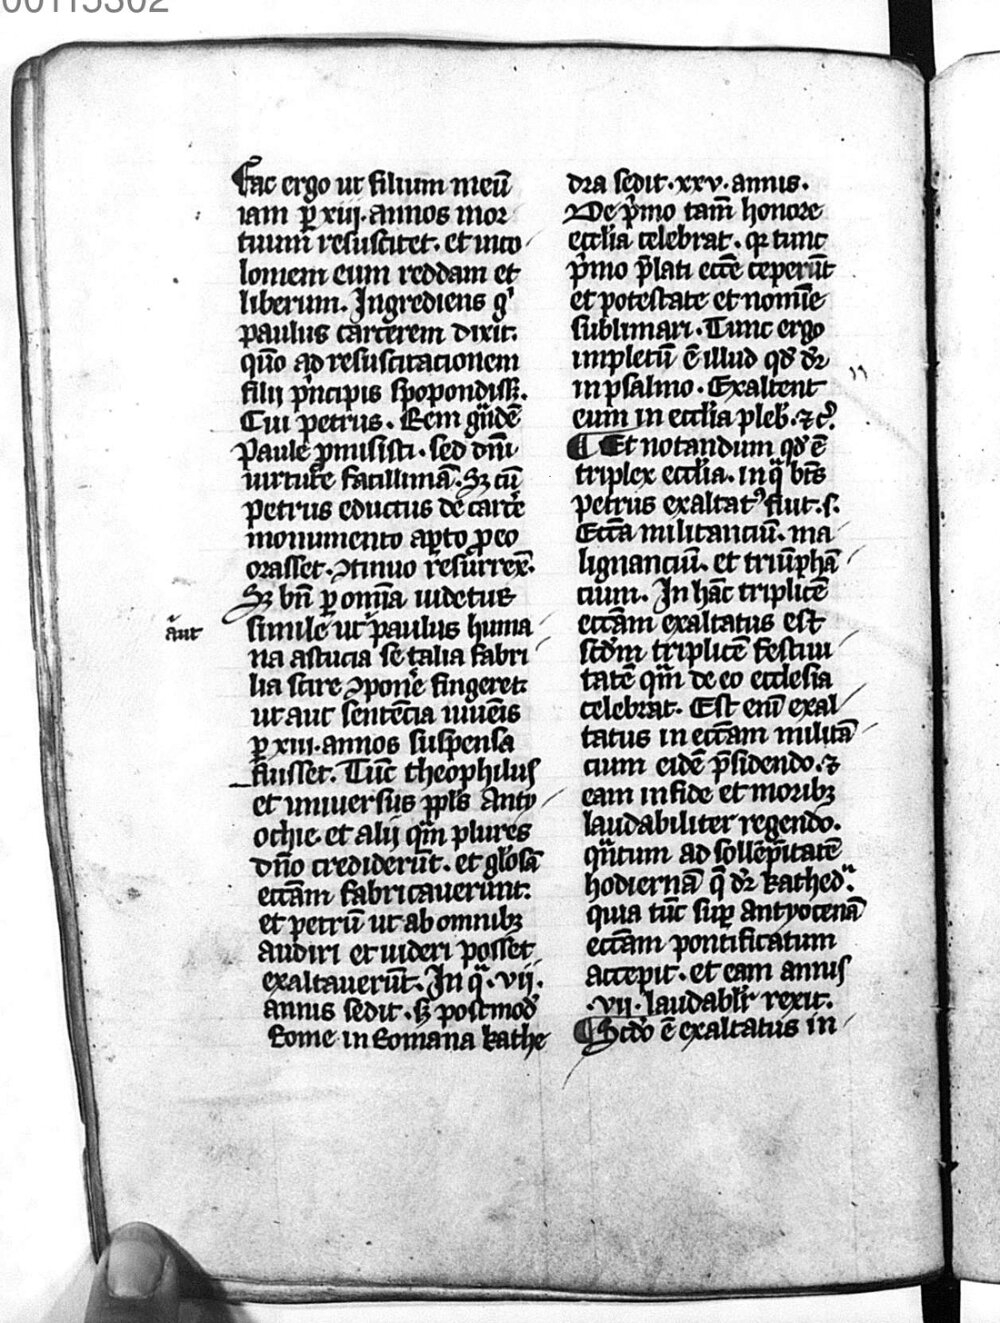 00115302
Fac ergo ut filium meū
iam ꝑ xiij. annos mor
tuum resuscitet. et inco
lomem eum reddam et
liberum. Ingrediens gͥ
paulus carcerem dixit.
quō ad resuscitacionem
filij pͥncipis spopondissꝫ.
Cui petrus. Rem gͣndē
Paule ꝓmisisti. sed dn̄i
uirtute facillimā. Sꝫ cū
petrus eductus de carce
monumento aꝑto ꝓ eo
orasset. ꝯtinuo resurrex̄.
Sꝫ bn̄ ꝑ omīa uidetur
simile ut paulus huma
āut
na astucia se talia fabri
lia scire ꝯpone fingeret
ut aut sentēcia iuuēis
ꝑ xiii. annos suspensa
fuisset. Tūc theophilus
et uniuersus ppl̄s Anty
ochie. et alij qm̄ plures
dn̄o crediderūt. et gl̄osā
eccām fabricauerunt.
et petrū ut ab omnibꝫ
audiri et uideri posset
exaltauerūt. In qͣ. vij.
annis sedit. sꝫ postmod̄
Rome in Romana kathe
dra sedit. xxv. annis.
De pͥmo tam̄ honore
ecclīa celebrat. qꝛ tunc
pͥmo p̄lati ecce ceperūt
et potestate et nomīe
sublimari. Tunc ergo
impletū ē illud qd̄ dr̄
in psalmo. Exaltent
eum in ecclīa pleb̄. ⁊c̄.
¶ Et notandum qd̄ ē
triplex ecclīa. in qͣ bt̄s
petrus exaltatꝰ fuit. s.
Eccā militanciū. ma
lignanciū. et triūphā
cium. In hāc triplicē
eccām exaltatus est
scd̄m triplicē festiui
tatē qm̄ de eo ecclesia
celebrat. Est enī exal
tatus in eccām militā
cium eidē p̄sidendo. ⁊
eam in fide et moribꝫ
laudabiliter regendo.
qn̄tum ad sollēpnitatē
hodiernā q̄ dr̄ kathedͣ.
quia tūc suꝑ Antyocenā
eccām pontificatum
accepit. et eam annis
.vii. laudabl̄r rexit.
¶ Scd̄o ē exaltatus in